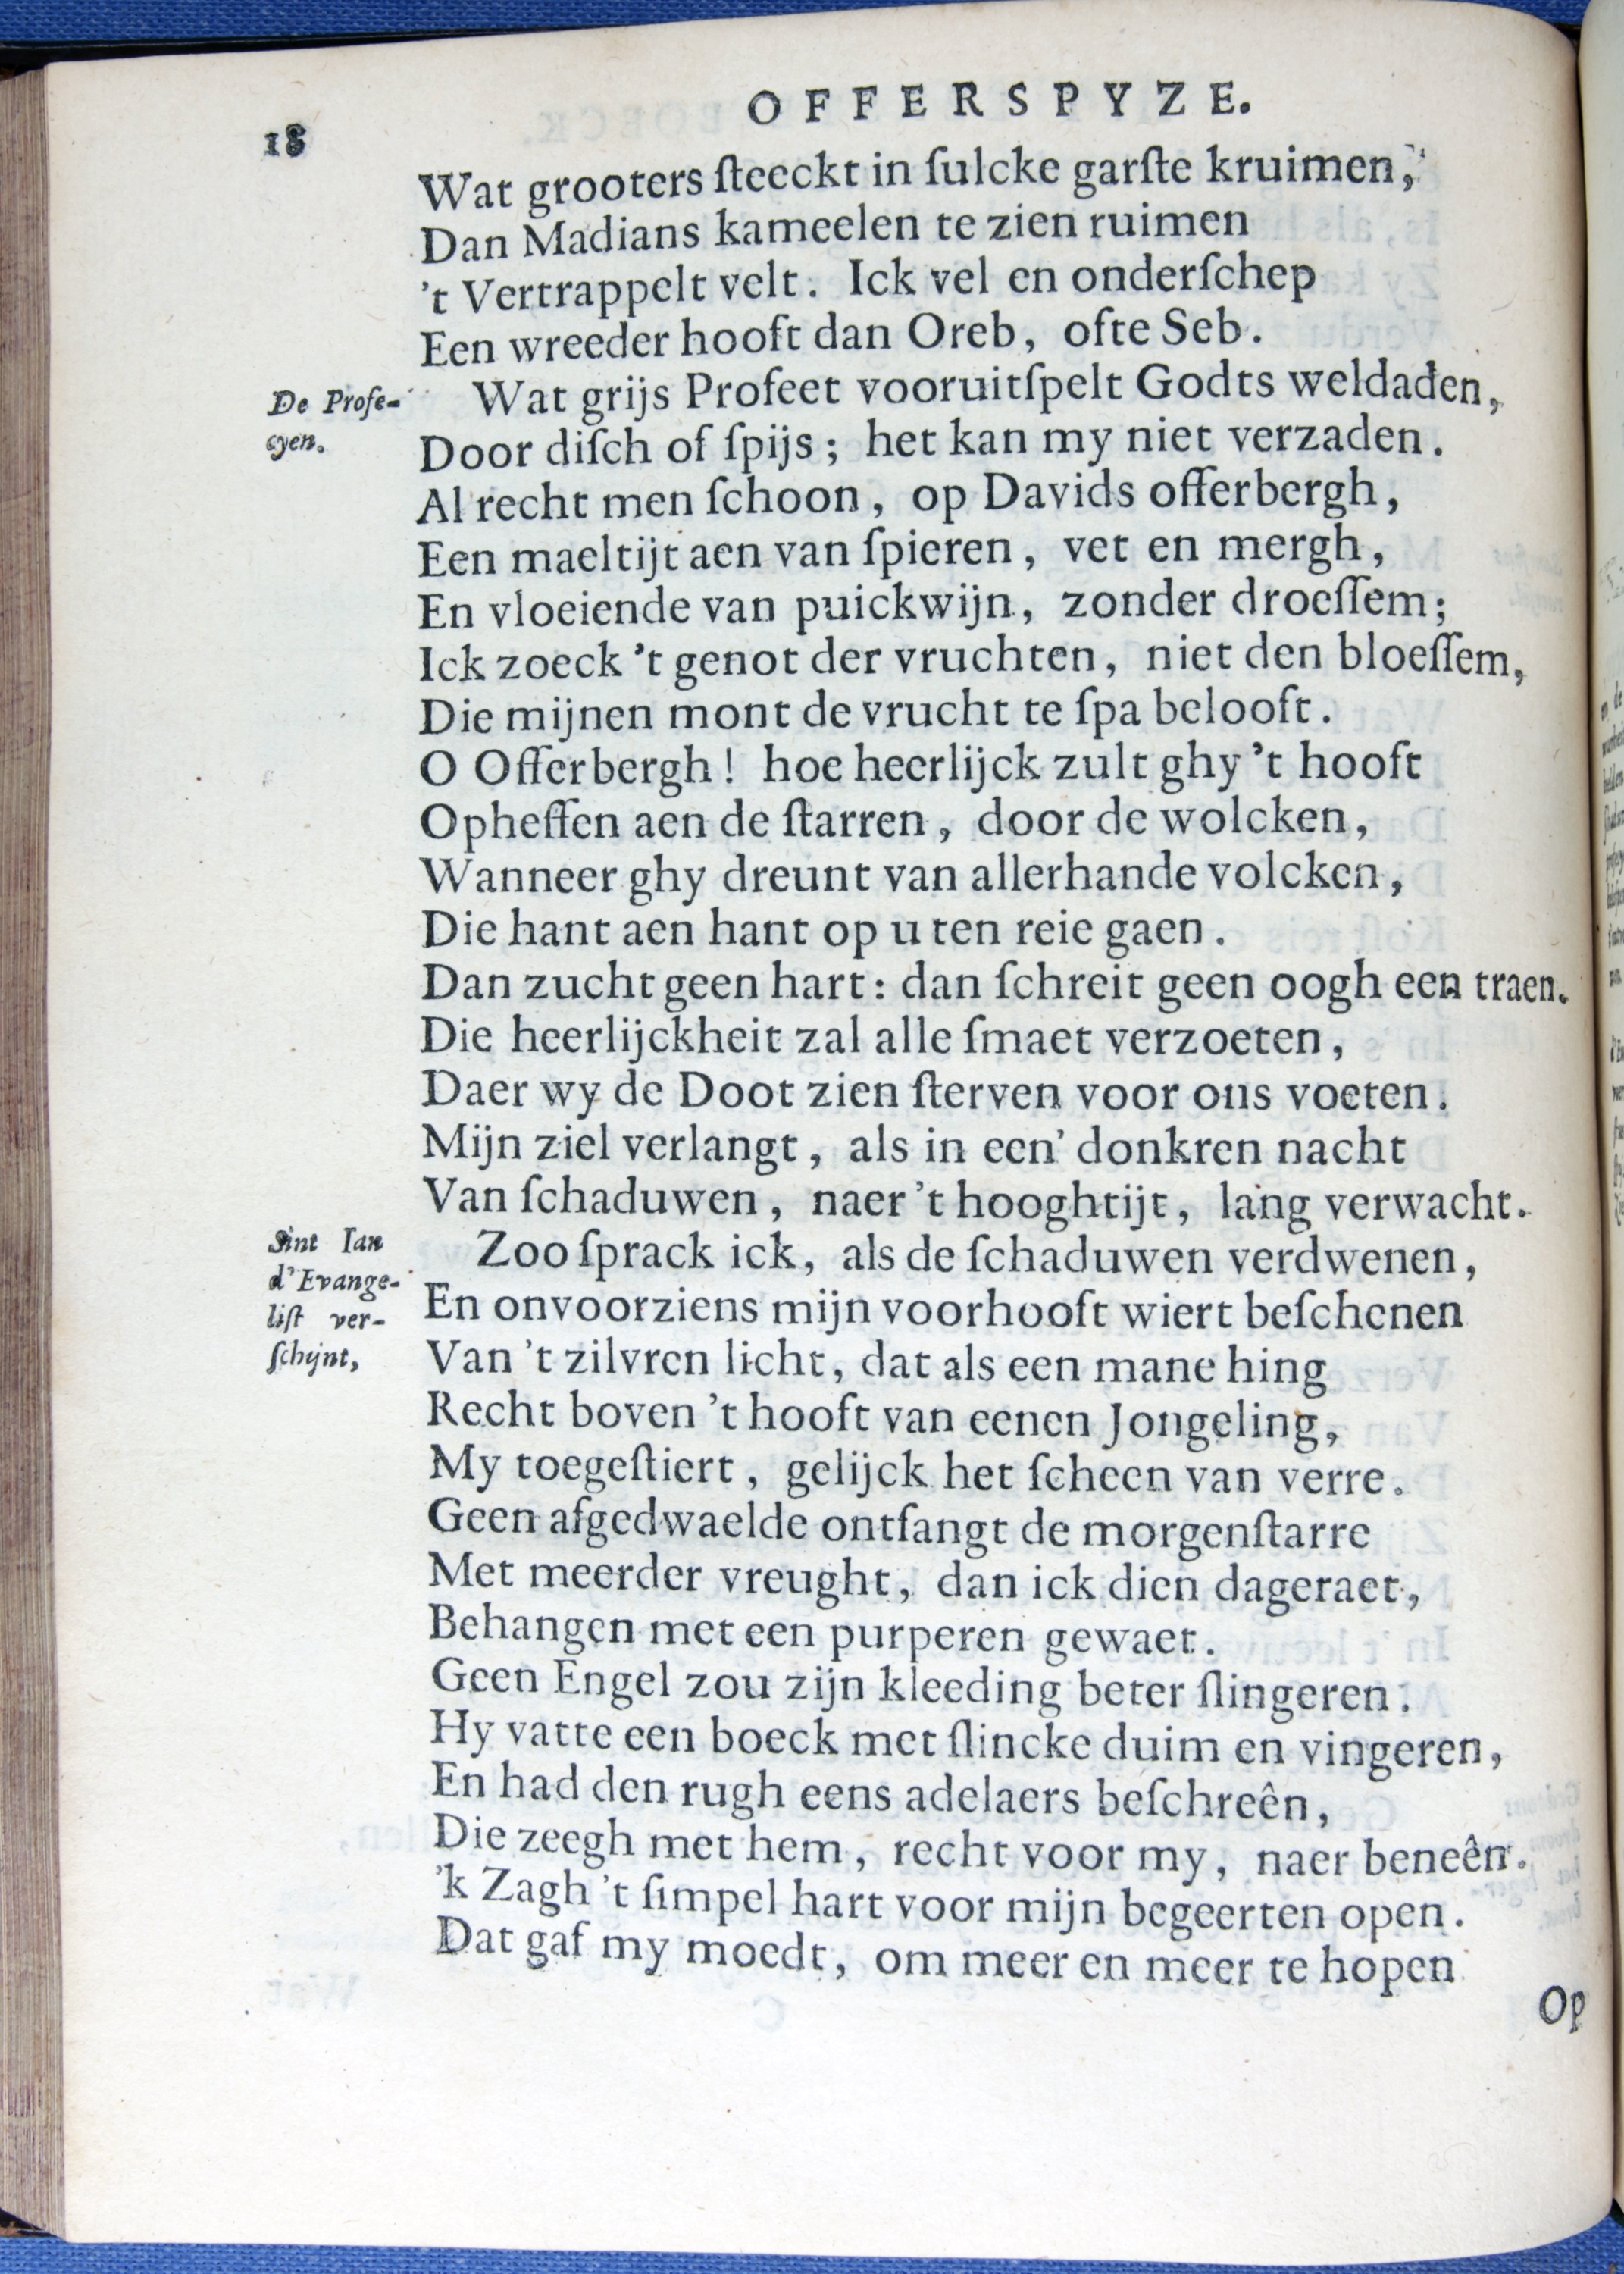 OFFERSPYZE.
18
Wat grooters ſteeckt in ſulcke garſte kruimen,
Dan Madians kameelen te zien ruimen
't Vertrappelt velt. Ick vel en onderſchep
Een wreeder hooft dan Oreb, ofte Seb.
De Profe-
cyen.
Wat grijs Profeet vooruitſpelt Godts weldaden,
Door diſch of ſpijs; het kan my niet verzaden.
Al recht men ſchoon, op Davids offerbergh,
Een maeltijt aen van ſpieren, vet en mergh,
En vloeiende van puickwijn, zonder droeſſem;
Ick zoeck 't genot der vruchten, niet den bloeſſem,
Die mijnen mont de vrucht te ſpa belooft.
O Offerbergh! hoe heerlijck zult ghy 't hooft
Opheffen aen de ſtarren, door de wolcken,
Wanneer ghy dreunt van allerhande volcken,
Die hant aen hant op u ten reie gaen.
Dan zucht geen hart: dan ſchreit geen oogh een traen.
Die heerlijckheit zal alle ſmaet verzoeten,
Daer wy de Doot zien ſterven voor ons voeten.
Mijn ziel verlangt, als in een' donkren nacht
Van ſchaduwen, naer 't hooghtijt, lang verwacht.
Sint Ian
d'Evange-
liſt ver-
ſchijnt,
Zoo ſprack ick, als de ſchaduwen verdwenen,
En onvoorziens mijn voorhooft wiert beſchenen
Van 't zilvren licht, dat als een mane hing
Recht boven 't hooft van eenen Jongeling,
My toegeſtiert, gelijck het ſcheen van verre.
Geen afgedwaelde ontfangt de morgenſtarre
Met meerder vreught, dan ick dien dageraet,
Behangen met een purperen gewaet.
Geen Engel zou zijn kleeding beter ſlingeren.
Hy vatte een boeck met ſlincke duim en vingeren,
En had den rugh eens adelaers beſchreên,
Die zeegh met hem, recht voor my, naer beneên.
'k Zagh 't ſimpel hart voor mijn begeerten open.
Dat gaf my moedt, om meer en meer te hopen
Op